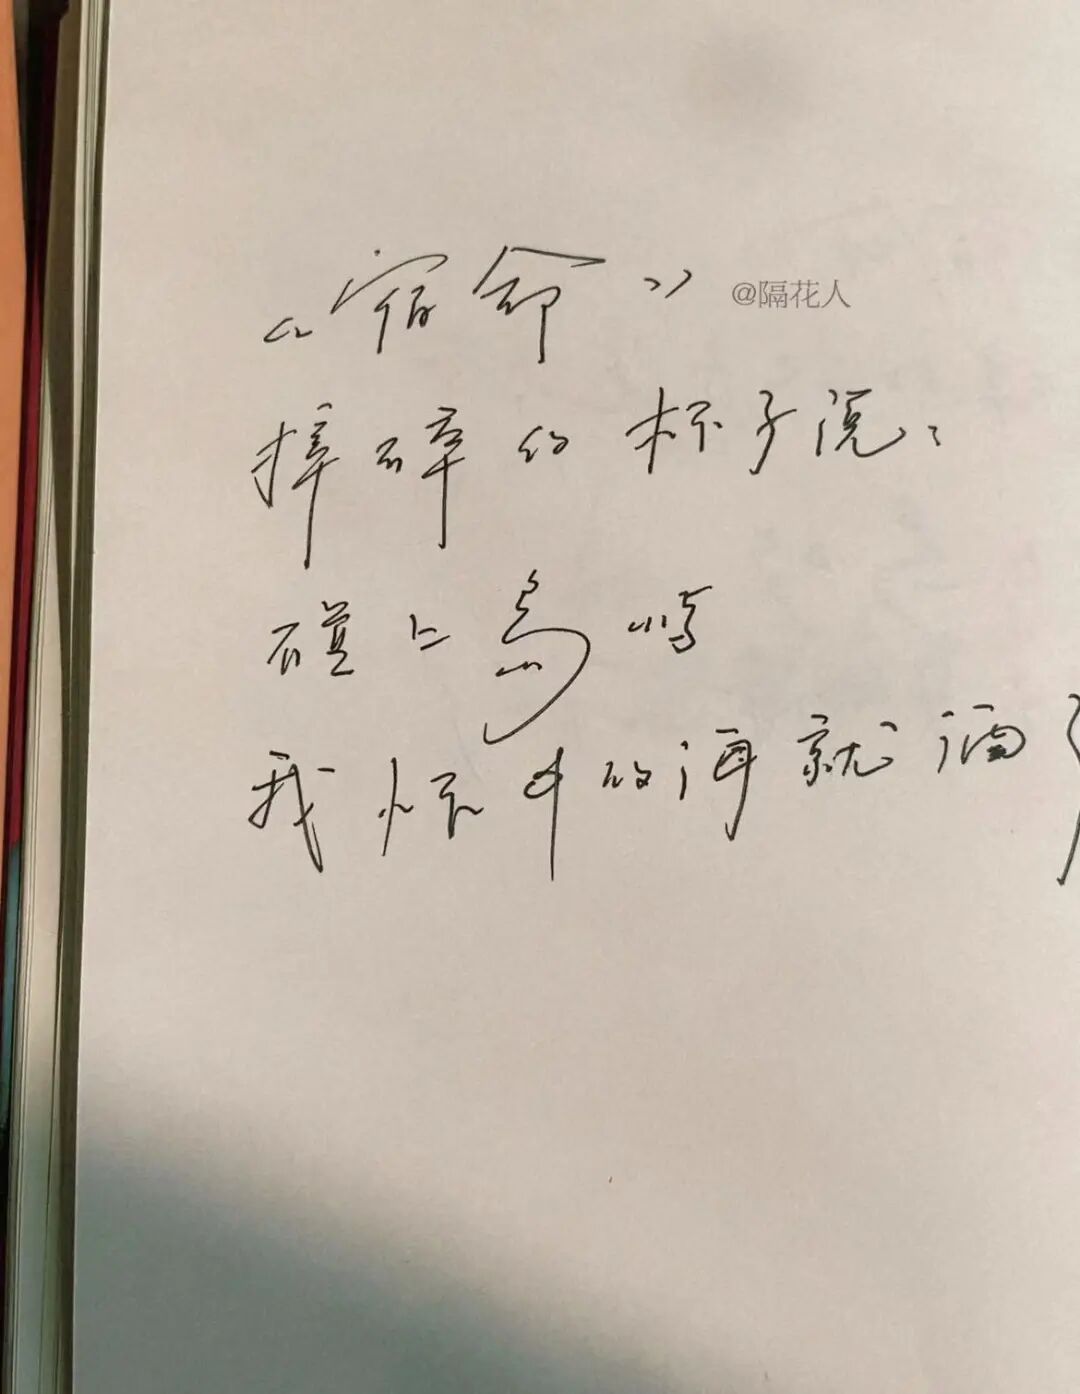 《宿命》 @隔花人
摔碎的杯子说：
碰上岛屿
我怀中的海就洒